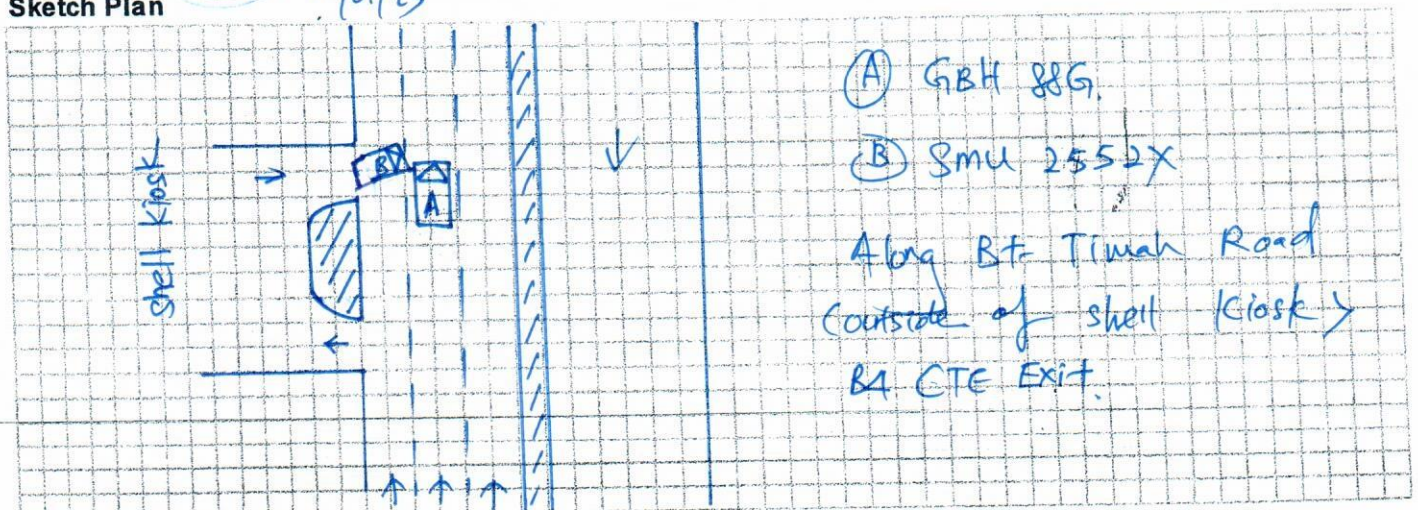 Sketch Plan
shell kiosk
B
A
(A) GBH 88G.
(B) SMU 2552X
Along Bt Timah Road
(outside of shell kiosk)
B4 CTE Exit.